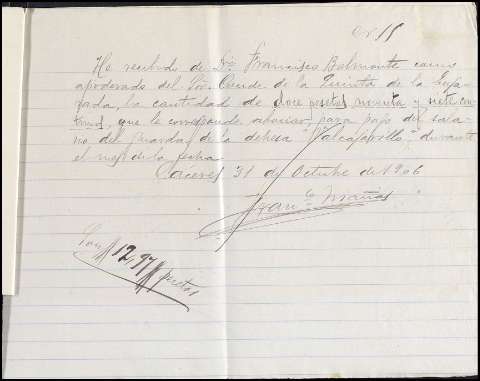 N. 15
He recibido de Dn. Francisco Belmonte como
apoderado del Sor. Conde de la Quinta de la Enja-
rada, la cantidad de doce pesetas noventa y siete cen-
timos, que le corresponde abonar para pago del sala-
rio del guarda de la dehesa "Valcajarillo," durante
el mes de la fecha.
Caceres 31 de Octubre de 1906
Son 12,97 pesetas